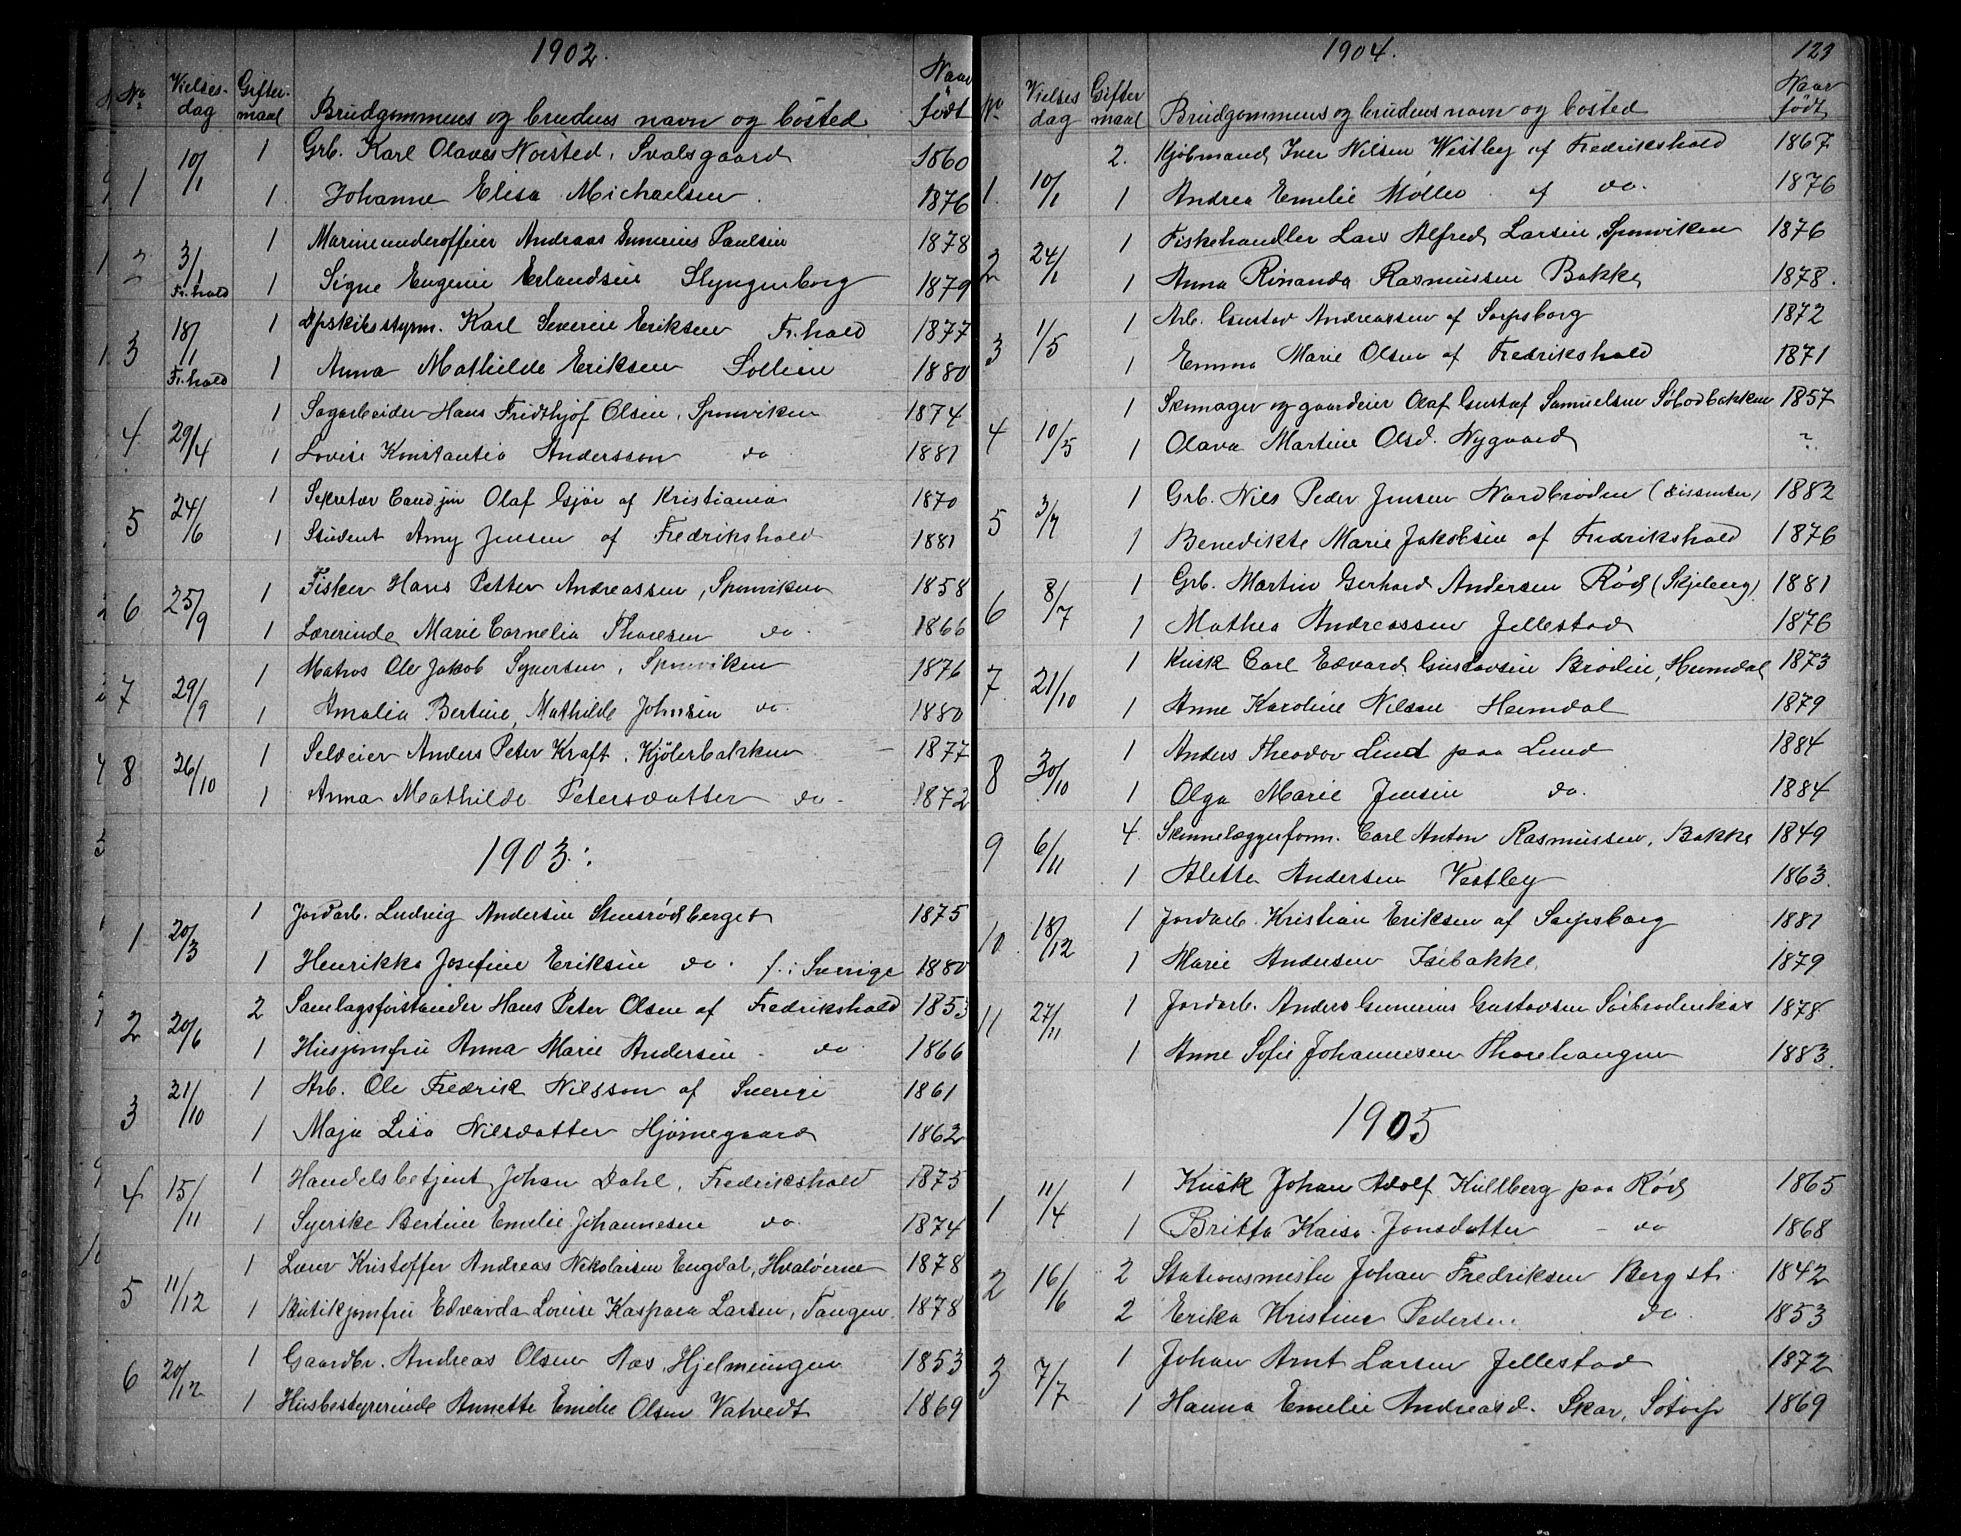 1902.
No Vielses-dag Gifter-maal Brudgommens og brudens navn og bosted Naar født
1 10/1 1 Grb. Karl Olaves Noisted, Svalsgaard 1860
1 Johanne Elisa Michaelsen 1876
2 3/1 Fr.hald 1 Marineunderofficer Andreas Gunerius Paulsen 1878
1 Signe Eugenie Erlandsen Slyngenborg 1879
3 18/1 Fr.hald 1 Dpskibsstyrm. Karl Severin Eriksen Fr.hald 1877
1 Anna Mathilde Eriksen Sollien 1880
4 29/4 1 Sagarbeider Hans Fridthjof Olsen, Sponviken 1874
1 Lovise Konstantia Andersson do 1881
5 24/6 1 Sekretær Cand jur Olaf Gjør af Kristiania 1870
1 Student Amy Jensen af Fredrikshald 1881
6 25/9 1 Fisker Hans Petter Andreassen, Sponviken 1858
1 Lærerinde Marie Cornelia Thoresen do. 1866
7 29/9 1 Matros Ole Jakob Syversen, Sponviken 1876
1 Amalia Bertine Mathilde Johnsen do. 1880
8 26/10 1 Seleier Anders Peter Kraft, Kjølerbakken 1877
1 Anna Mathilde Petersdatter do. 1872
1903.
1 20/3 1 Jordarb. Ludvig Andersen Stensrødberget 1875
1 Henrikka Josefine Eriksen do. f. i Sverige 1880
2 20/6 2 Samlagsforstander Hans Peter Olsen af Fredrikshald 1853
1 Husjomfru Anna Marie Andersen do 1866
3 21/10 1 Arb. Ole Fredrik Nilsson af Sverige 1861
1 Maja Lisa Nilsdatter Hjørnegaard 1862
4 15/11 1 Handelsbetjent Johan Dahl, Fredrikshald 1875
1 Syerske Bertine Emelie Johannesen do. 1874
5 11/12 1 Lærer Kristoffer Andreas Nikolaisen Engdal, Hvaløerne 1878
1 Butikjomfru Edvarda Lovise Kaspara Larsen, Tangen 1878
6 20/12 1 Gaardbr. Andreas Olsen Aas, Hjelmungen 1853
1 Husbestyrerinde Annette Emilie Olsen Vatvedt 1869
1904. 123
No Vielses dag Gifter maal Brudgommens og brudens navn og bosted Naar født
2. Kjøbmand Iver Nilsen Westby af Fredrikshald 1867
1. 10/1 1 Andrea Emelie Møller af do. 1876
2 24/1 1 Fiskehandler Lars Alfred Larsen, Sponviken 1876
1 Anna Rinanda Rasmussen Bakke 1878.
3 1/5 1 Arb. Gustav Andreassen af Sarpsborg 1872
1 Emma Marie Olsen af Fredrikshald 1871
4 10/5 1 Skomager og gaardeier Olaf Gustaf Samuelsen Søbodbakken 1857
1 Olava Martine Olsd. Nygaard ?
5 3/7 1 Grb. Nils Peder Jensen Nordbrøden (dissenter) 1882
1 Benedikte Marie Jakobsen af Fredrikshald 1876
6 8/7 1 Grb. Martin Gerhard Andersen Rød (Skjeberg) 1881
1 Mathea Andreassen Jellestad 1876
7 21/10 1 Kusk Carl Edvard Gustavsen Brødin, Hemdal 1873
1 Anne Karoline Nilsen Hemdal 1879
8 30/10 1 Anders Theodor Lund paa Lund 1884
1 Olga Marie Jensen do. 1884
9 6/11 4. Skinnelæggerform. Carl Anton Rasmussen, Bakke 1849
1 Alette Andersen Vestby 1863.
10 18/12 1 Jordarb. Kristian Eriksen af Sarpsborg 1881
1 Marie Andersen Isebakke 1879
11 27/11 1 Jordarb. Anders Gunerius Gustavsen 1878
1 Anne Sofie Johannesen Thorehaugen 1883.
1905
1 11/4 1 Kusk Johan Adolf Kullberg paa Rød 1865
1 Britta Kaisa Jonsdatter do 1868
2 16/6 2 Stationsmester Johan Fredriksen Berg st. 1842
2 Erika Kristine Pedersen do. 1853
3 7/7 1 Johan Arnt Larsen Jellestad 1872
1 Hanna Emelie Andreasd. Skar, 1869